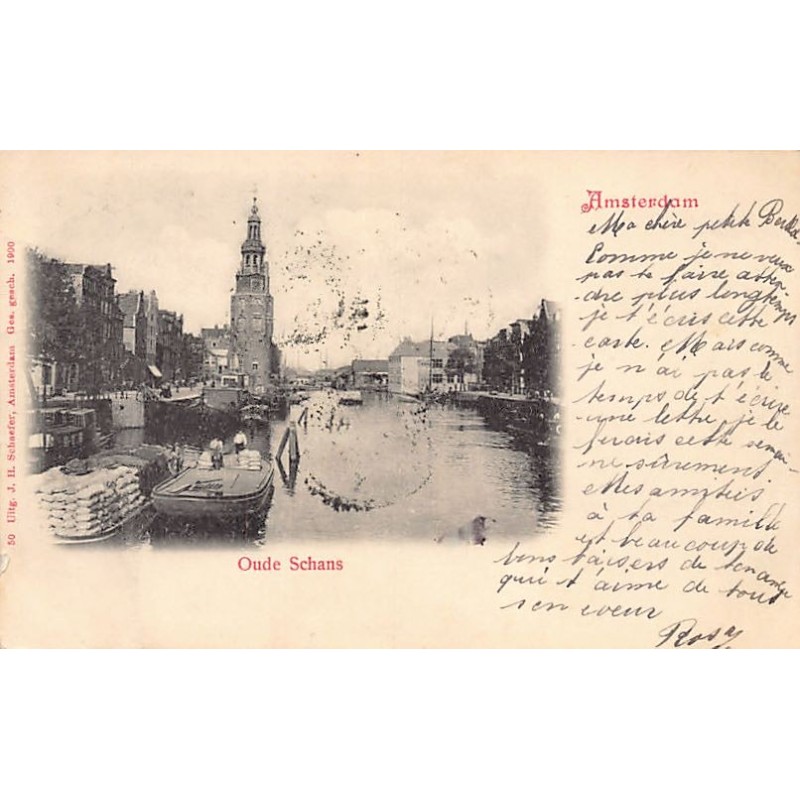 50 Uitg. J. H. Schaefer, Amsterdam Ges. gesch. 1900
Amsterdam
Ma chère petite
Comme je ne veux
pas te faire atten-
dre plus longtemps
je t'écris cette
carte. Mais comme
je n'ai pas le
temps de t'écrire
une lettre, je le
ferais cette semai-
ne sûrement.
Mes amitiés
à ta famille
et beaucoup de
bons baisers de ton ange
qui t'aime de tout
son coeur
Rosa
Oude Schans